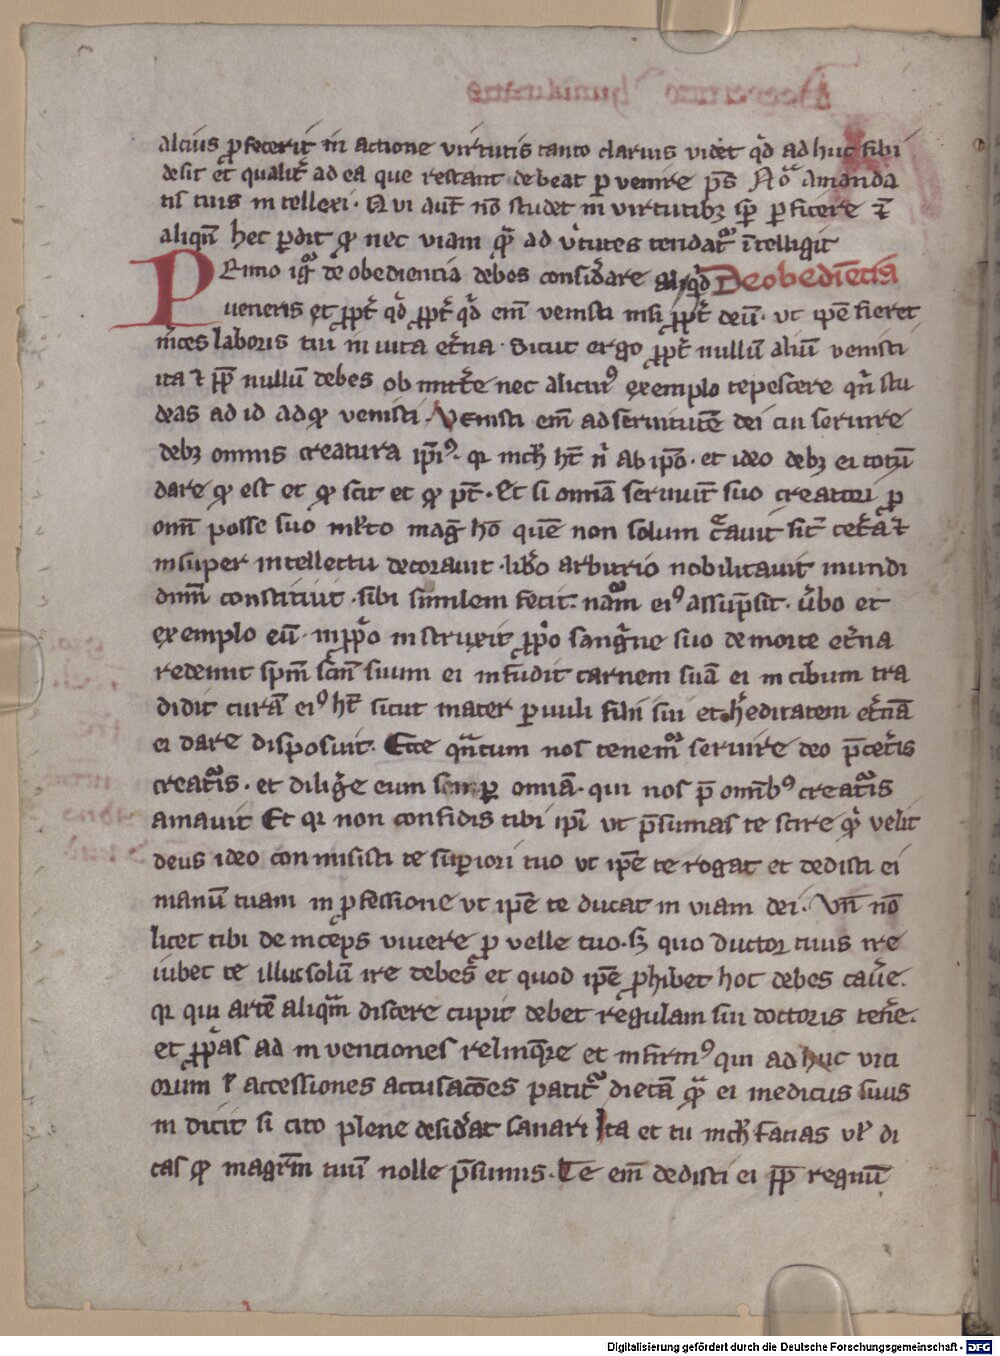 alcius ꝓfecerit in actione virtutis tanto clarius videt qd̓ adhuc sibi
desit et qualit̓ ad ea que restant debeat ꝑvenire ps̄ A amanda
tis tuis intellexi · Qui aut̄ nō studet in virtutibꝫ sp̄ ꝑficere ⁊
aliqn̄ hec ꝑdit qͦ nec viam qͣ ad v̓tutes tendat᷑ īntelligit
PRimo igͥ de obediencia debes consid̓are ad qd̓ De obediēcia
veneris et ꝓpt̓ qd̓ ꝓpt̓ qd̓ em̄ venisti nisi ꝓpt̓ deū · ut ip̄e fieret
m̓ces laboris tui in vita et̓na · Sicut ergo ꝓpt̓ nullū aliū venisti
ita ⁊ ꝓp̄ nullū debes obmitt̓e nec alicuiꝰ exemplo tepescere qn̄ stu
deas ad id ad qͦ venisti · Venisti em̄ ad servitutē dei cui servire
debꝫ omnis creatura ip̄iꝰ · qꝛ nich̄ ht̄ n̄ ab ip̄o · et ideo debꝫ ei totū
dare qͦ est et qͦ scit et qͦ pt̄ · Et si omīa serviūt suo creatori ꝓ
om̄i posse suo m̓ito mag̓ hō quē non solum c̓avit sic̄ cet̓a ⁊
insuper intellectu decoravit · lib̓o arbitrio nobilitavit mundi
dn̄m constituit · sibi similem fecit · nām eiꝰ assūpsit · v̓bo et
exemplo eū · inꝓp̓o instruxit ꝓp̓o sangͥne suo de morte et̓na
redemit sp̄m sc̄m suum ei infudit carnem suā ei in cibum tra
didit curā eiꝰ ht̄ sicut mater ꝑvuli filii sui et h̓editatem et̓nā
ei dare disposuit · Ecce qͣntum nos tenem᷑ servire deo p̄cet̓is
creat᷑is · et dilig̓e eum semꝑ omīa · qui nos p̄ omīb̓ꝰ creat᷑is
amavit Et qꝛ non confidis tibi ip̄i ut p̄sumas te scire qͥ velit
deus ideo conmisisti te suꝑiori tuo ut ip̄e te rogat et dedisti ei
manū tuam in ꝓfessione ut ip̄e te ducat in viam dei · Vn̄ nō
licet tibi deinceps vivere ꝓ velle tuo · sꝫ quo ductor tuus ire
iubet te illuc solū ire debes et quod ip̄e ꝓhibet hoc debes cav̓e ·
qꝛ qui artē aliqͣm discere cupit debet regulam sui doctoris ten̓e ·
et ꝓpͥas adinvenciones relinqͣ̓e et infirmꝰ qui adhuc vici
orum ł accessiones accusacōes patit᷑ dietā qͣ ei medicus suus
indicit si cito plene desid̓at sanari Ita et tu nich̄ facias vł di
cas qͦ magr̄m tuū nolle p̄sumis · Te em̄ dedisti ei ꝓp̄ regnū
Digitalisierung gefördert durch die Deutsche Forschungsgemeinschaft - DFG